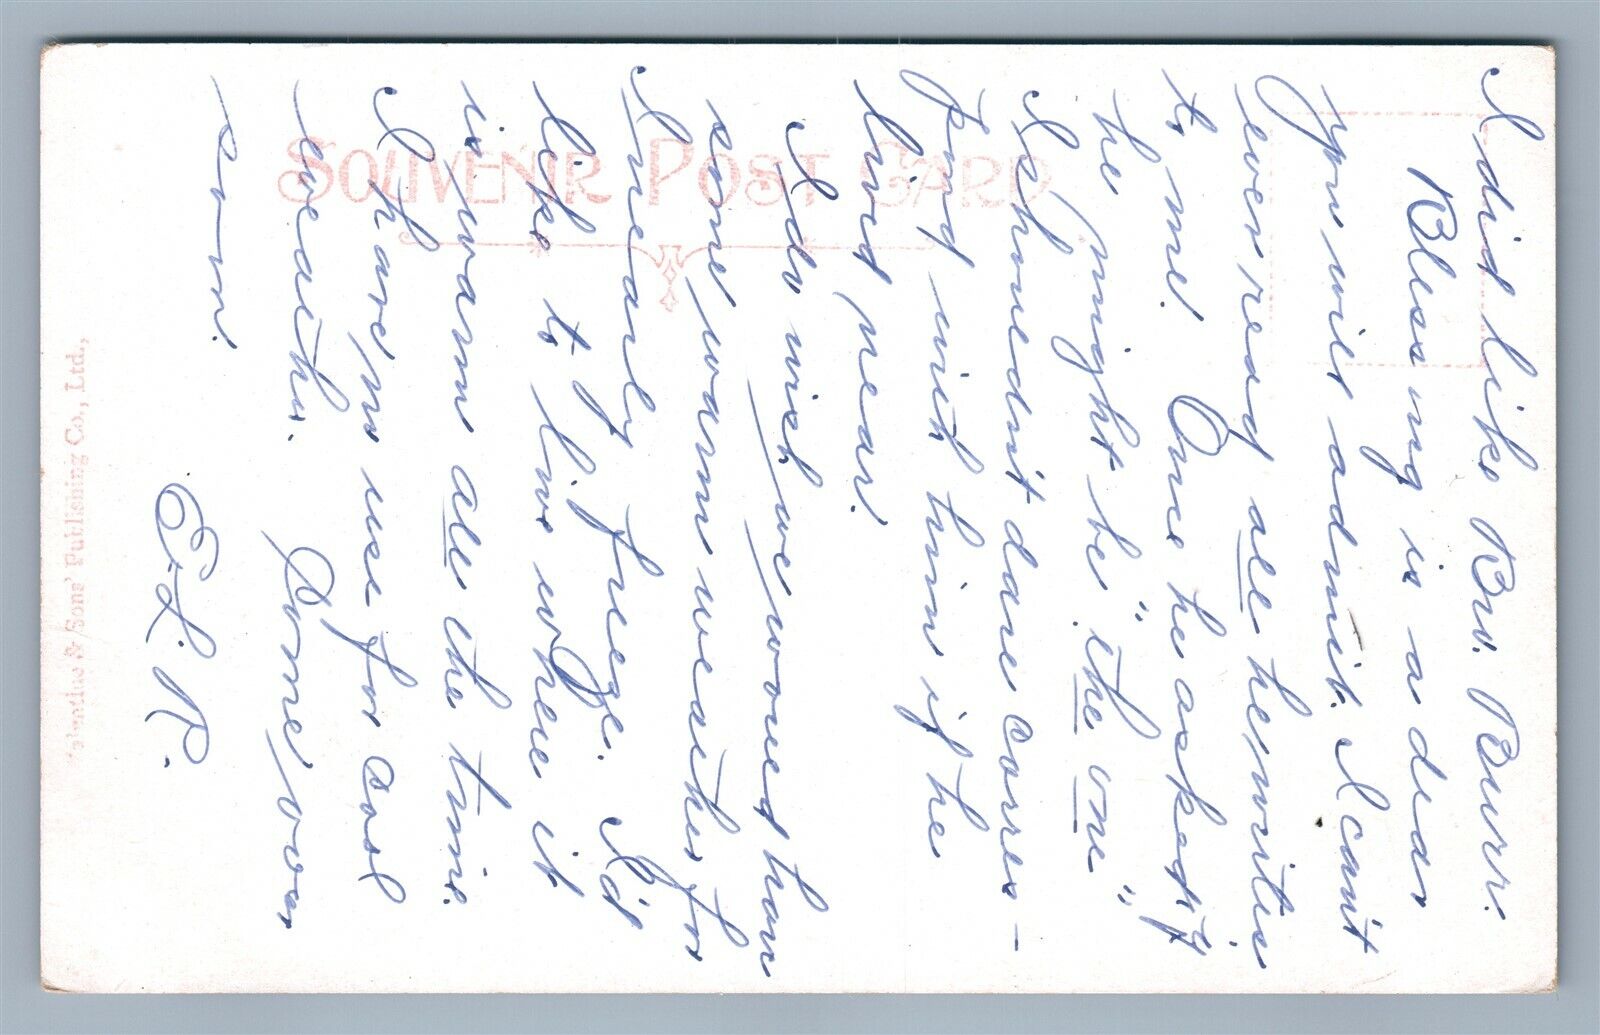 I did like Bro. Burr.
Blessing is a dear
you will admit. I can't
even read all he writes
to me! Once he asked if
he might be "the one"
I shouldn't dare corres-
pond with him if he
lived near!
I do wish we would have
some warm weather, for
I nearly freeze. I'd
like to live where it
is warm all the time.
I have no use for cool
weather. Come over
soon.
E. L. R.
SOUVENIR POST CARD
& Sons' Publishing Co., Ltd.,